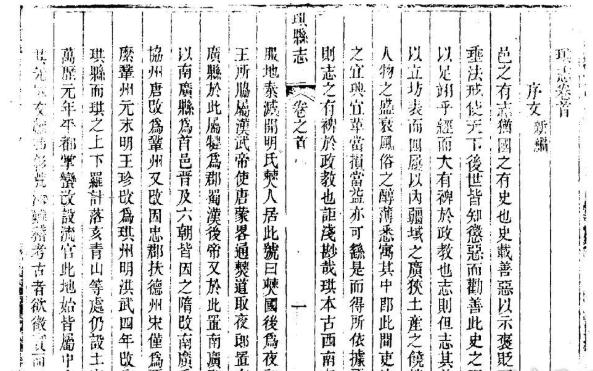 珙志卷首
序文 新編
邑之有志猶國之有史也史載善惡以示褒貶
垂法戒使天下後世皆知懲惡而勸善此史之
以足翊乎經而大有裨於政教也志則但志其
以立坊表而四履以內疆域之廣狹土產之饒
人物之盛衰風俗之醇薄悉寓其中郡此閒吏
之宜興宜革當損當益亦可繇是而得所依據
則志之有裨於政教也詎淺尠哉珙本古西南
珙縣志
卷之首
一
服地秦滅開明氏僰人居此號曰僰國後為夜
王所脇屬漢武帝使唐蒙畧通僰道取夜郎置
廣縣於此屬犍為郡蜀漢後帝又於此置南廣
以南廣縣為首邑晉及六朝皆因之隋改南廣
協州唐改為鞏州又改因忠郡扶德州宋僅為
縻鞏州元末明王珍改為珙州明洪武四年改
珙縣而珙之上下羅計落亥青山等處仍設土
萬歷元年平都掌蠻改設流官此地始皆屬中
稽考古者欲徵